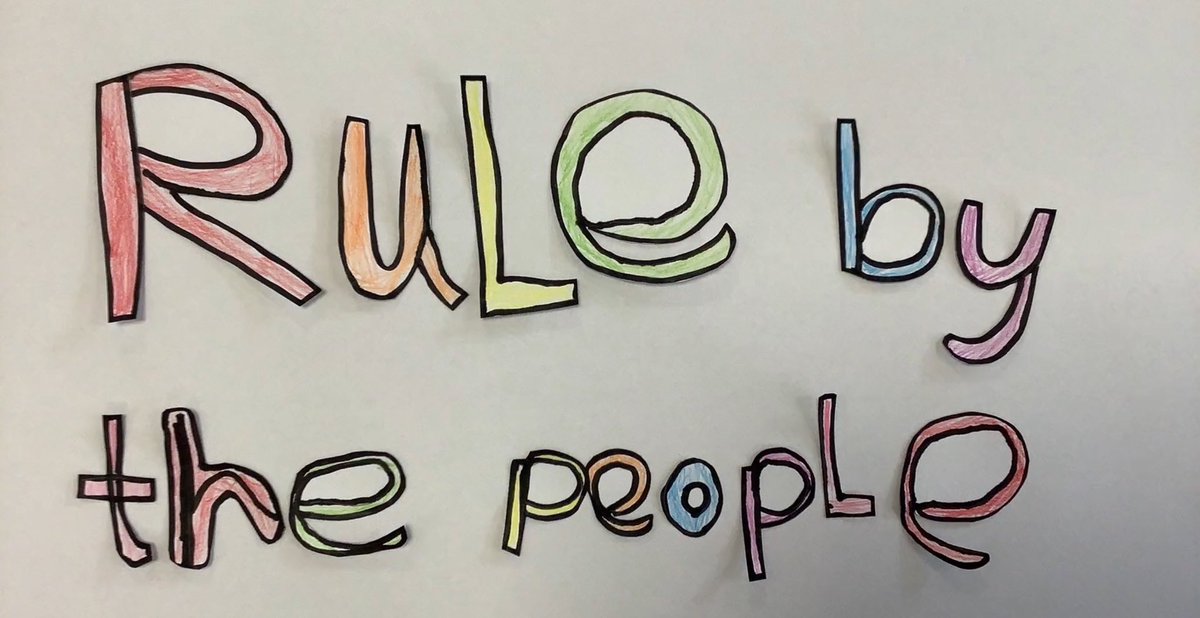 RuLe by
the peopLe